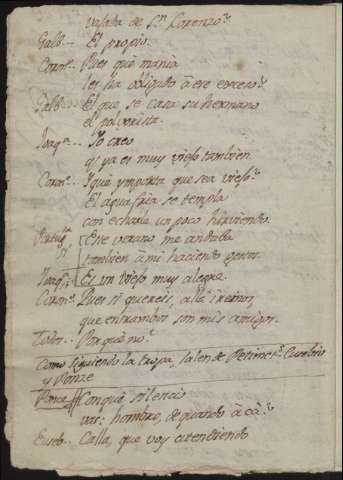 valaba de Sn. Lorenzo?
Galb.. El propio.
Coron.. Pues que mania
les ha obligado á ese exceso?
Galb.. El que se casa su hermano
el polvorista.
Joaqa.. Yo creo
q.e ya es muy viejo tambien.
Coron.. Y que ymporta que sea viejo?
El agua fria se templa
con echarla un poco hirviendo.
Este verano me andaba
tambien á mi haciendo gestos.
Joaqa.. Es un viejo muy alegre.
Coron.. Pues si quereis, alla iremos,
que entrambos son mis amigos.
Todos.. Por que no?
Como siguiendo la tropa, salen de Petimets. Eusebio
y Ponze
Ponce Conque silencio
vas: hombre, de quando á cá?
Euseb.. Calla, que voy atendiendo